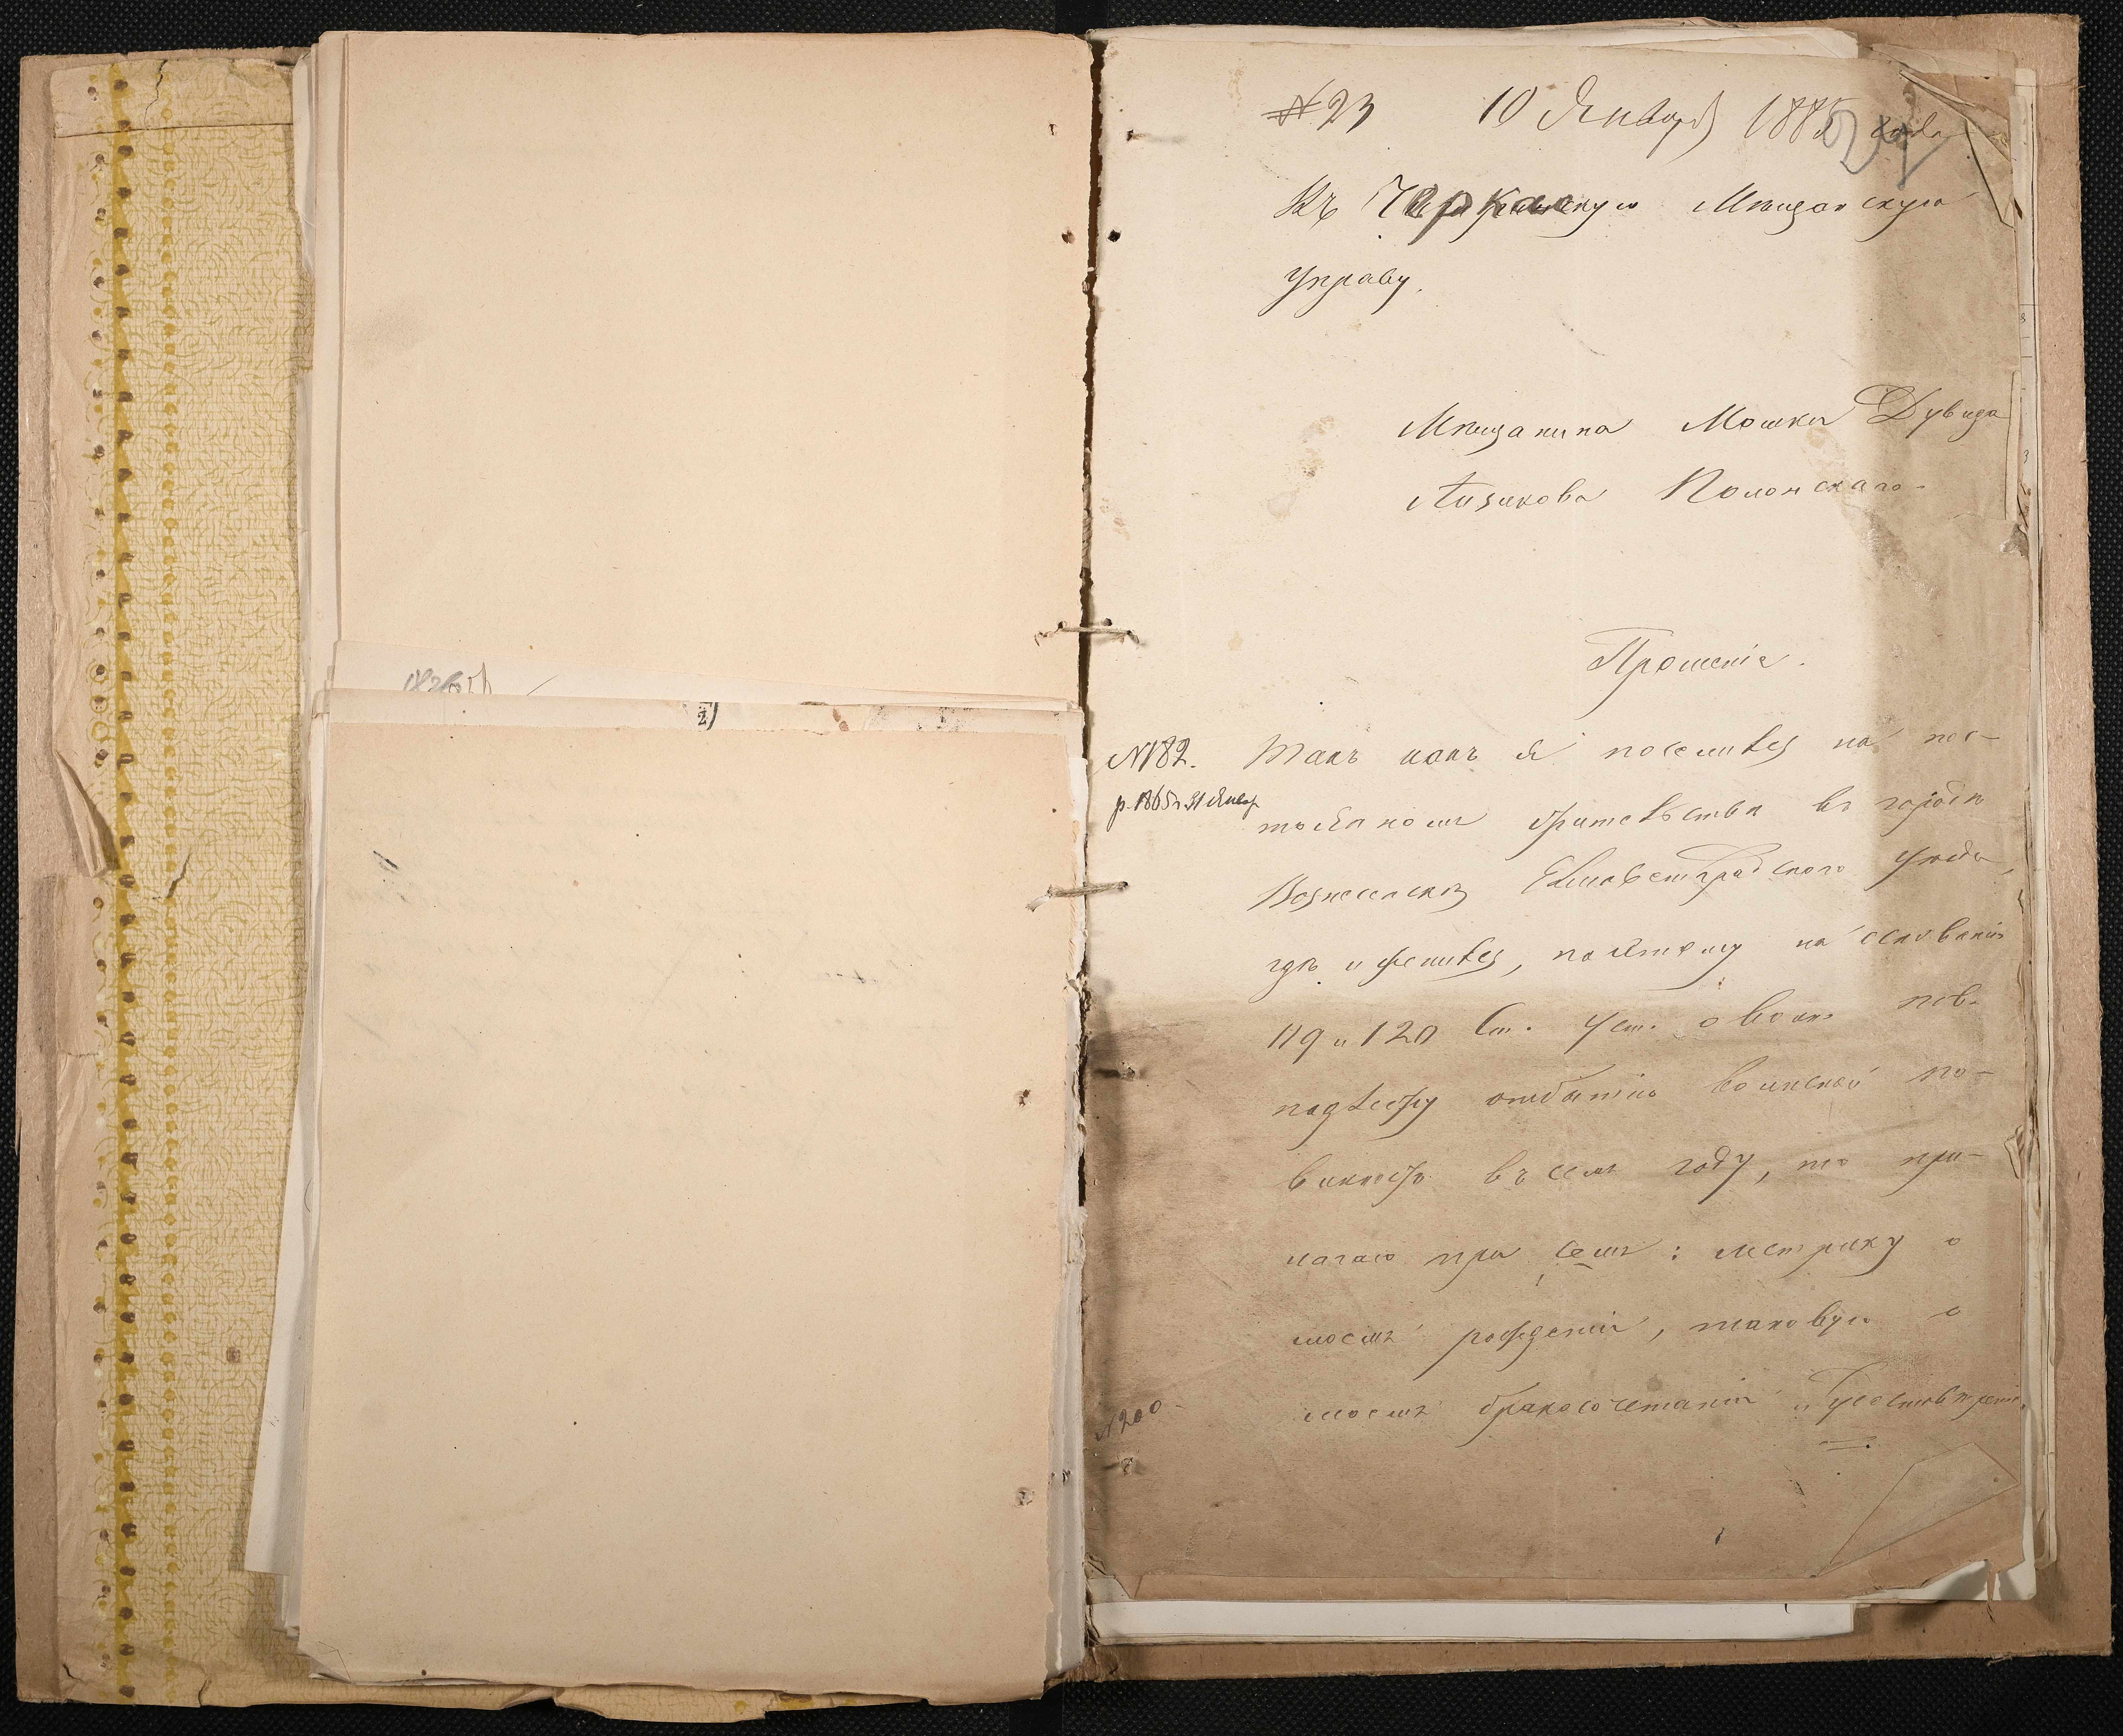 № 23 10 Января 1885 года
Въ Черкаскую Мѣщанскую
Управу.
Мѣщанина Мошки Дувида
Айзикова Полонскаго
Прошеніе.
№182. Такъ какъ я поселился на пос-
р. 1865 г. 31 Январ
тоянномъ жительствѣ въ городѣ
Вознесенскѣ Елисаветградскаго уѣзда,
гдѣ и женился, поэтому на основаніи
119 и 120 Ст. Уст. о воин. пов.
подлежу отбытію воинской по-
винности въ семъ году, то при-
лагаю при семъ: метрику о
моемъ рожденіи, таковую о
моемъ бракосочетаніи и
№200